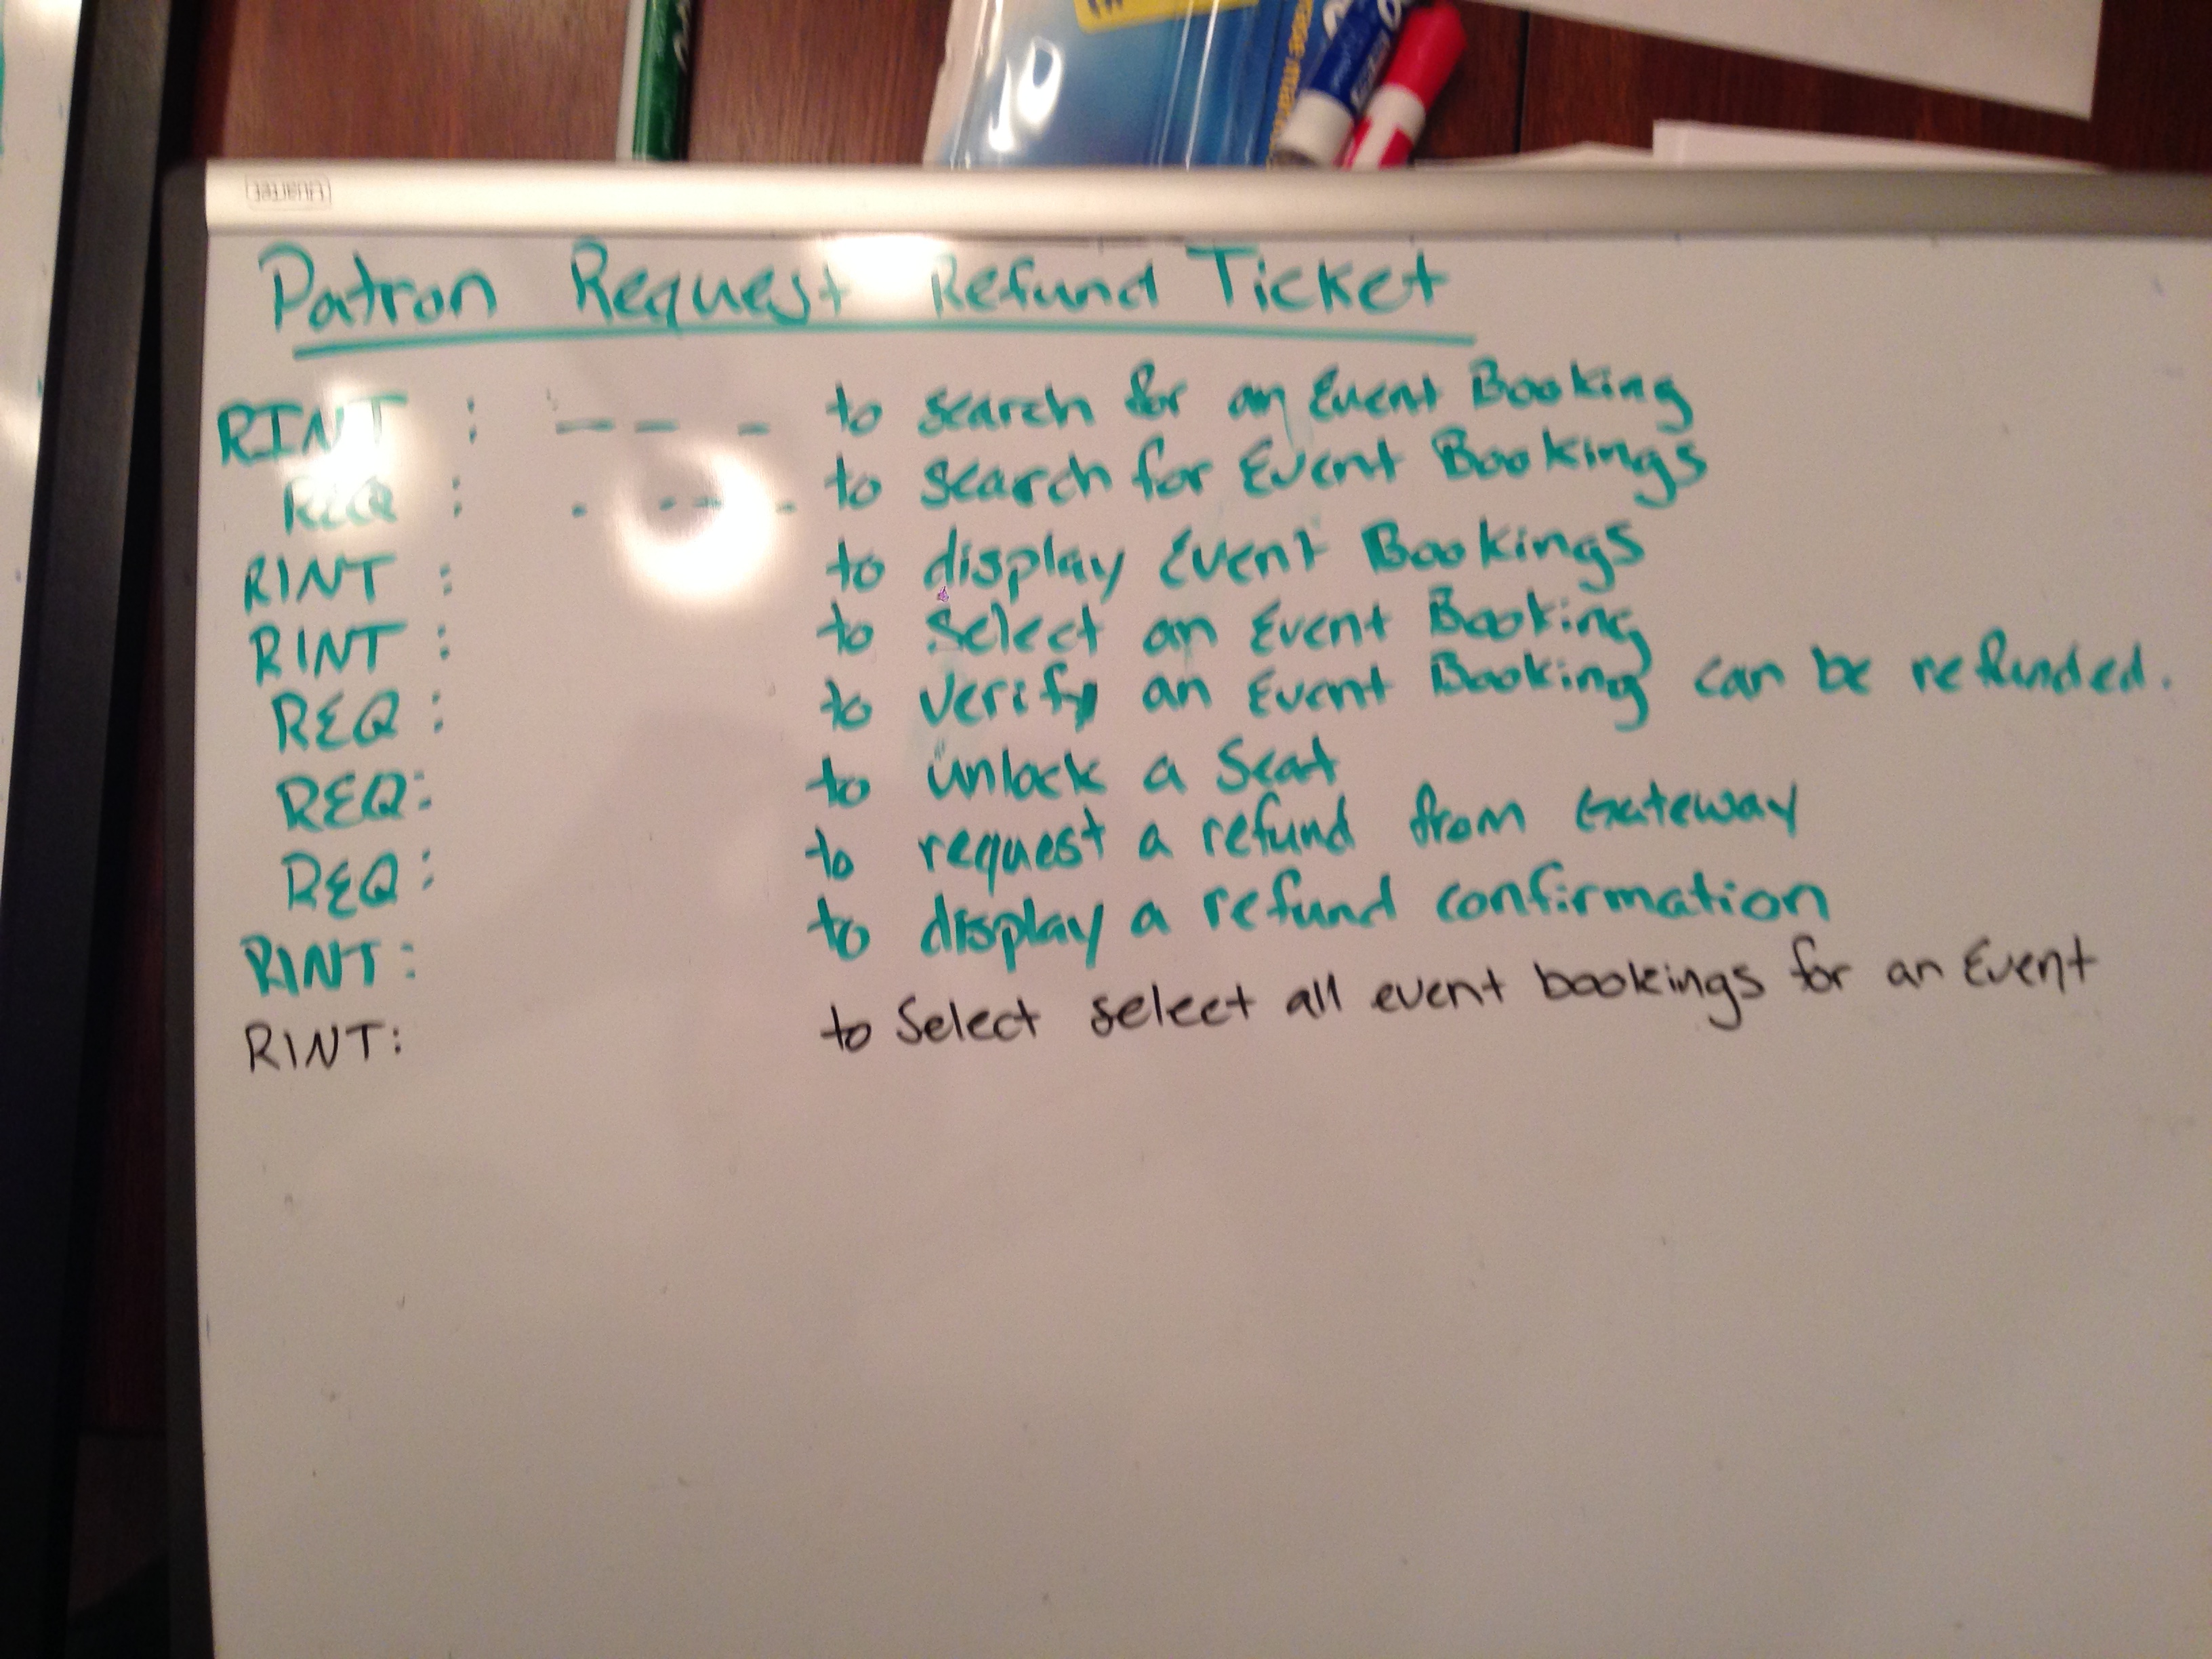 Quartet
Patron Request Refund Ticket
RINT : — — — to search for an Event Booking
REQ : . - - - to search for Event Bookings
RINT : to display Event Bookings
RINT : to select an Event Booking
REQ : to verify an Event Booking can be refunded.
REQ: to unlock a Seat
REQ : to request a refund from Gateway
RINT : to display a refund confirmation
RINT: to Select select all event bookings for an Event